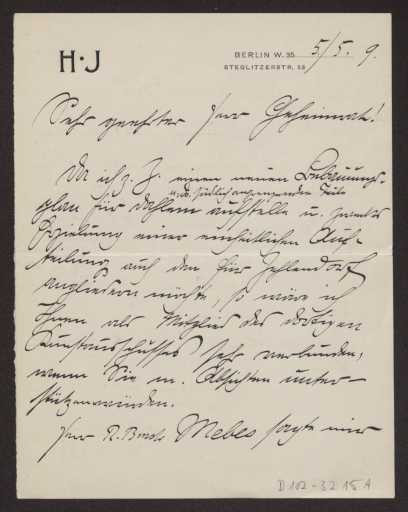 H·J
BERLIN W. 35. 5/5. 9.
STEGLITZERSTR. 53
Sehr geehrter Herr Geheimrat!
Da ich z. Z. einen neuen Bebauungs-
u. d. südlich angrenzenden Teile
plan für Dahlem aufstelle u. zwecks
Erzielung einer einheitlichen Auf-
teilung auch den für Zehlendorf
angliedern möchte, so wäre ich
Ihnen als Mitglied des dortigen
Kunstausschusses sehr verbunden,
wenn Sie m. Absichten unter-
stützen würden.
Herr R. Bmstr. Mebes sagte mir
D 102-32 15 A